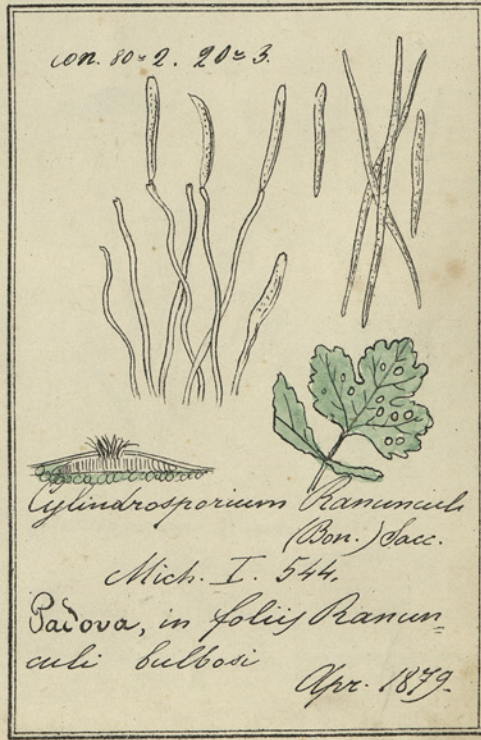 con. 80 = 2. 20 = 3.
Cylindrosporium Ranunculi
(Bon.) Sacc.
Mich. I. 544.
Padova, in foliis Ranun=
culi bulbosi
Apr. 1879.